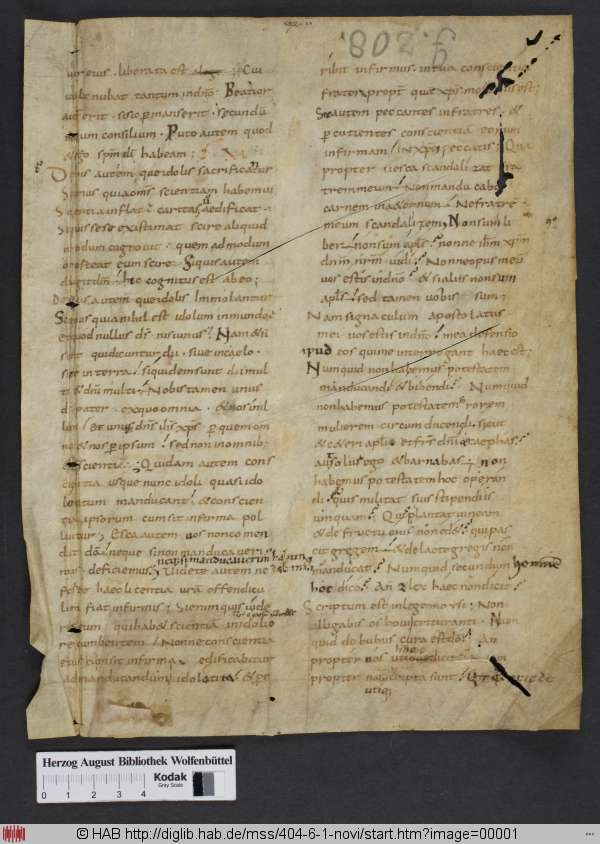 vir eius · liberata est a lege · Cui
vult nubat tantum in dño · Beatior
autem erit · si sic permanserit · secundū
meum consilium · Puto autem quod
& ego spm di habeam ·
De his autem que idolis sacrificantur
Scimus quia omnes scientiam habemus
Scientia inflat · caritas aedificat ·
Si quis se existimat scire aliquid
nondum cognovit · quem ad modum
oporteat eum scire · Si quis autem
diligit dm · hic cognitus est ab eo ;
De escis autem que idolis Immolantur
Scimus quia nihil est idolum in mundo
et quod nullus ds nisi unus · Nam & si
sunt qui dicuntur dii · sive in caelo ·
sive in terra · siquidem sunt dii mul
ti & dni multi · Nobis tamen unus
ds pater · ex quo omnia · & nos in il
lum · et unus dns ihs xps · per quem om
nia & nos per ipsum · sed non in omnib;
est scientia · Quidam autem cons
cientia usque nunc idoli quasi ido
lotitum manducant · & conscien
tia ipsorum cum sit infirma pol
luitur · Esca autem nos non commen
dat do · neque si non manducaveri
mus · deficiemus · Videte autem ne
neque si manducaverimus habundabimus
forte haec licentia vra offendicu
lum fiat infirmis · Si enim quis vide
rit eum qui habet scientiam in idolio
recumbentem · Nonne conscientia
eius cum sit infirma · edificabitur
ad manducandum idolatita · & pe
g. 208.
ribit infirmus · in tua conscientia
frater propter que xps mortuus est ;
Sic autem peccantes in fratres · &
percutientes conscientiā eorum
infirmam · in xpm peccatis · Qua
propter si esca scandalizat fra
trem meum · Non manducabo
carnem in aeternum · Ne fratrē
meum scandalizem · Non sum li
ber · non sum apls · nonne ihm xpm
dnm nrm vidi · Nonne opus meū
vos estis in dño · & si aliis non sum
apls · sed tamen vobis sum ·
Nam signaculum apostolatus
mei vos estis in dño · mea defensio
apud eos qui me interrogant haec est ;
Numquid non habemus potestatem
manducandi & bibendi · Numquid
non habemus potestatem sororem
mulierem circumducendi · sicut
& ceteri apli · et frs dni et cephas ·
aut solus ego & barnabas · non
habemus potestatem hoc operan
di · Quis militat suis stipendiis
umquam · Quis plantat vineam
& de fructu eius non edet · quis pas
cit gregem · & de lacte gregis non
manducat · Numquid secundum hominē
hoc dico · An & lex haec non dicit ·
Scriptum est in lege moysi · Non
alligabis os bovi trituranti · Num
quid do bubus cura est do · An
propter nos utique dicit · Nam
propter nos scripta sunt ·
Herzog August Bibliothek Wolfenbüttel
Kodak
Grey Scale
0 1 2 3 4
© HAB http://diglib.hab.de/mss/404-6-1-novi/start.htm?image=00001